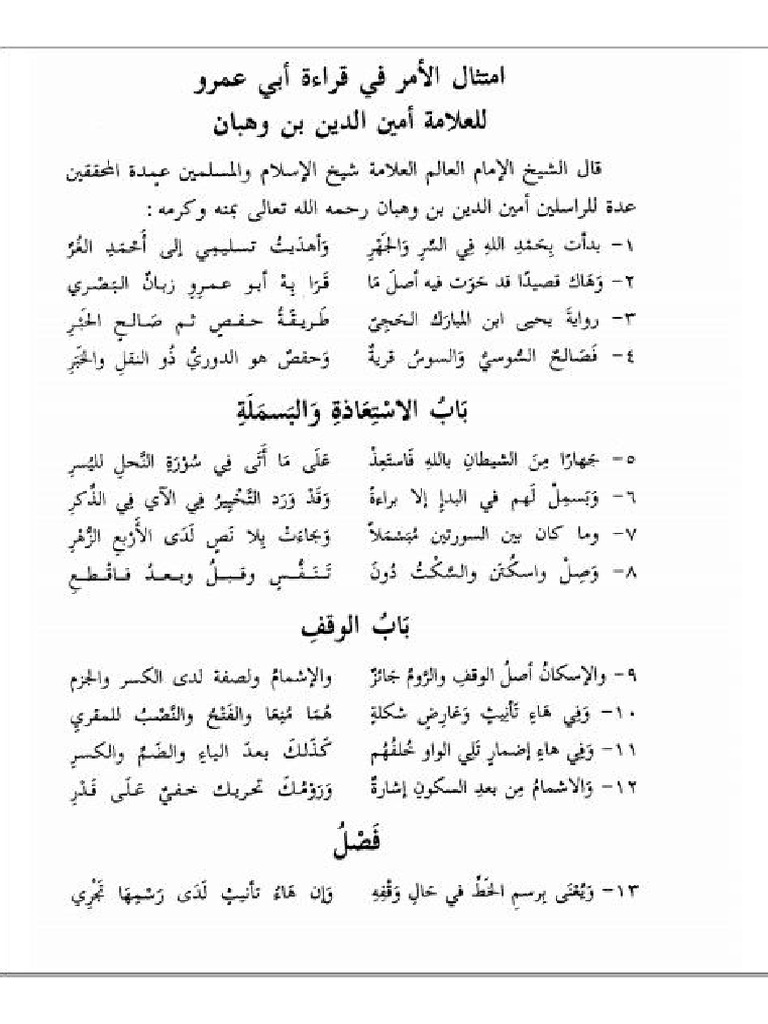 امتثال الأمر في قراءة أبي عمرو
للعلامة أمين الدين بن وهبان
قال الشيخ الإمام العالم العلامة شيخ الإسلام والمسلمين عمدة المحققين
عدة للراسلين أمين الدين بن وهبان رحمه الله تعالى بمنه وكرمه :
١- بدأت بِحَمْدِ اللهِ فِي السِّرِ وَالجَهْرِ وَأهْدَيتُ تسليمِي إلى أَحْمَدِ الغُرِّ
٢- وَهَاك قصيدًا قد حَوَت فيه أصلَ مَا قَرَا بِهْ أبو عمروٍ زبانُ البَصْرِي
٣- روايةَ يحيى ابن المبارك الحَجِيْ طَرِيقَةُ حفصٍ ثم صَالحِ الحَبْرِ
٤- فَصَالحُ السُّوسيْ وَالسوسُ قريةٌ وَحفصٌ هو الدوريُّ ذُو النقلِ والخَبَرِ
بَابُ الاسْتِعَاذةِ وَالبَسمَلَةِ
٥- جَهارًا مِنَ الشيطانِ باللهِ فَاستَعِذْ عَلَى مَا أَتَى فِي سُوْرَةِ النَّحلِ لليُسرِ
٦- وَبَسمِلْ لَهم في البدإِ إلا براءةً وَقَدْ وَرَد التَّخْيِيرُ فِي الآيِ في الذِّكرِ
٧- وما كان بين السورتين مُبَسْمَلاً وَجَاءَتْ بِلا نَصٍ لَدَى الأَرْبعِ الزُّهْرِ
٨- وَصِلْ واسكُتَن والسَّكْتُ دُونَ تَنَفُّسٍ وقبلُ وبعدُ فاقْطعِ
بَابُ الوَقفِ
٩- والإسكانُ أصلُ الوقفِ والرَّومُ جَائزٌ والإشمامُ ولصفة لدى الكسر والجزم
١٠- وَفِي هَاءِ تَأنيثٍ وَعَارِضِ شكلةٍ هُمَا مُنِعَا والفَتْحُ والنَّصْبُ للمقرِي
١١- وَفِي هاءِ إضمارٍ تَلِي الواو خُلفُهُم كَذَلكَ بعدَ الياءِ والضَمِّ والكسرِ
١٢- وَالاشمامُ مِن بعدِ السكونِ إشارةٌ وَرَوْمُكَ تحريك خفيٌ عَلَى قَدْرِ
فَصْلُ
١٣- وَيُعْنَى بِرسمِ الخَطِّ في حَالِ وَقْفِهِ وَإن هَاءُ تأنيثٍ لَدَى رَسْمِهَا تَجْرِي